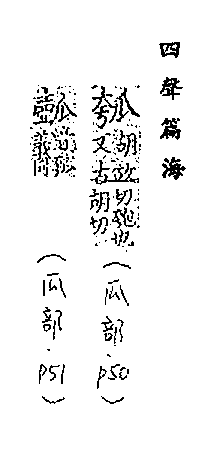 四聲篇海
瓠 胡故切匏也又古胡切 (瓜部.p50)
義同 (瓜部.p51)